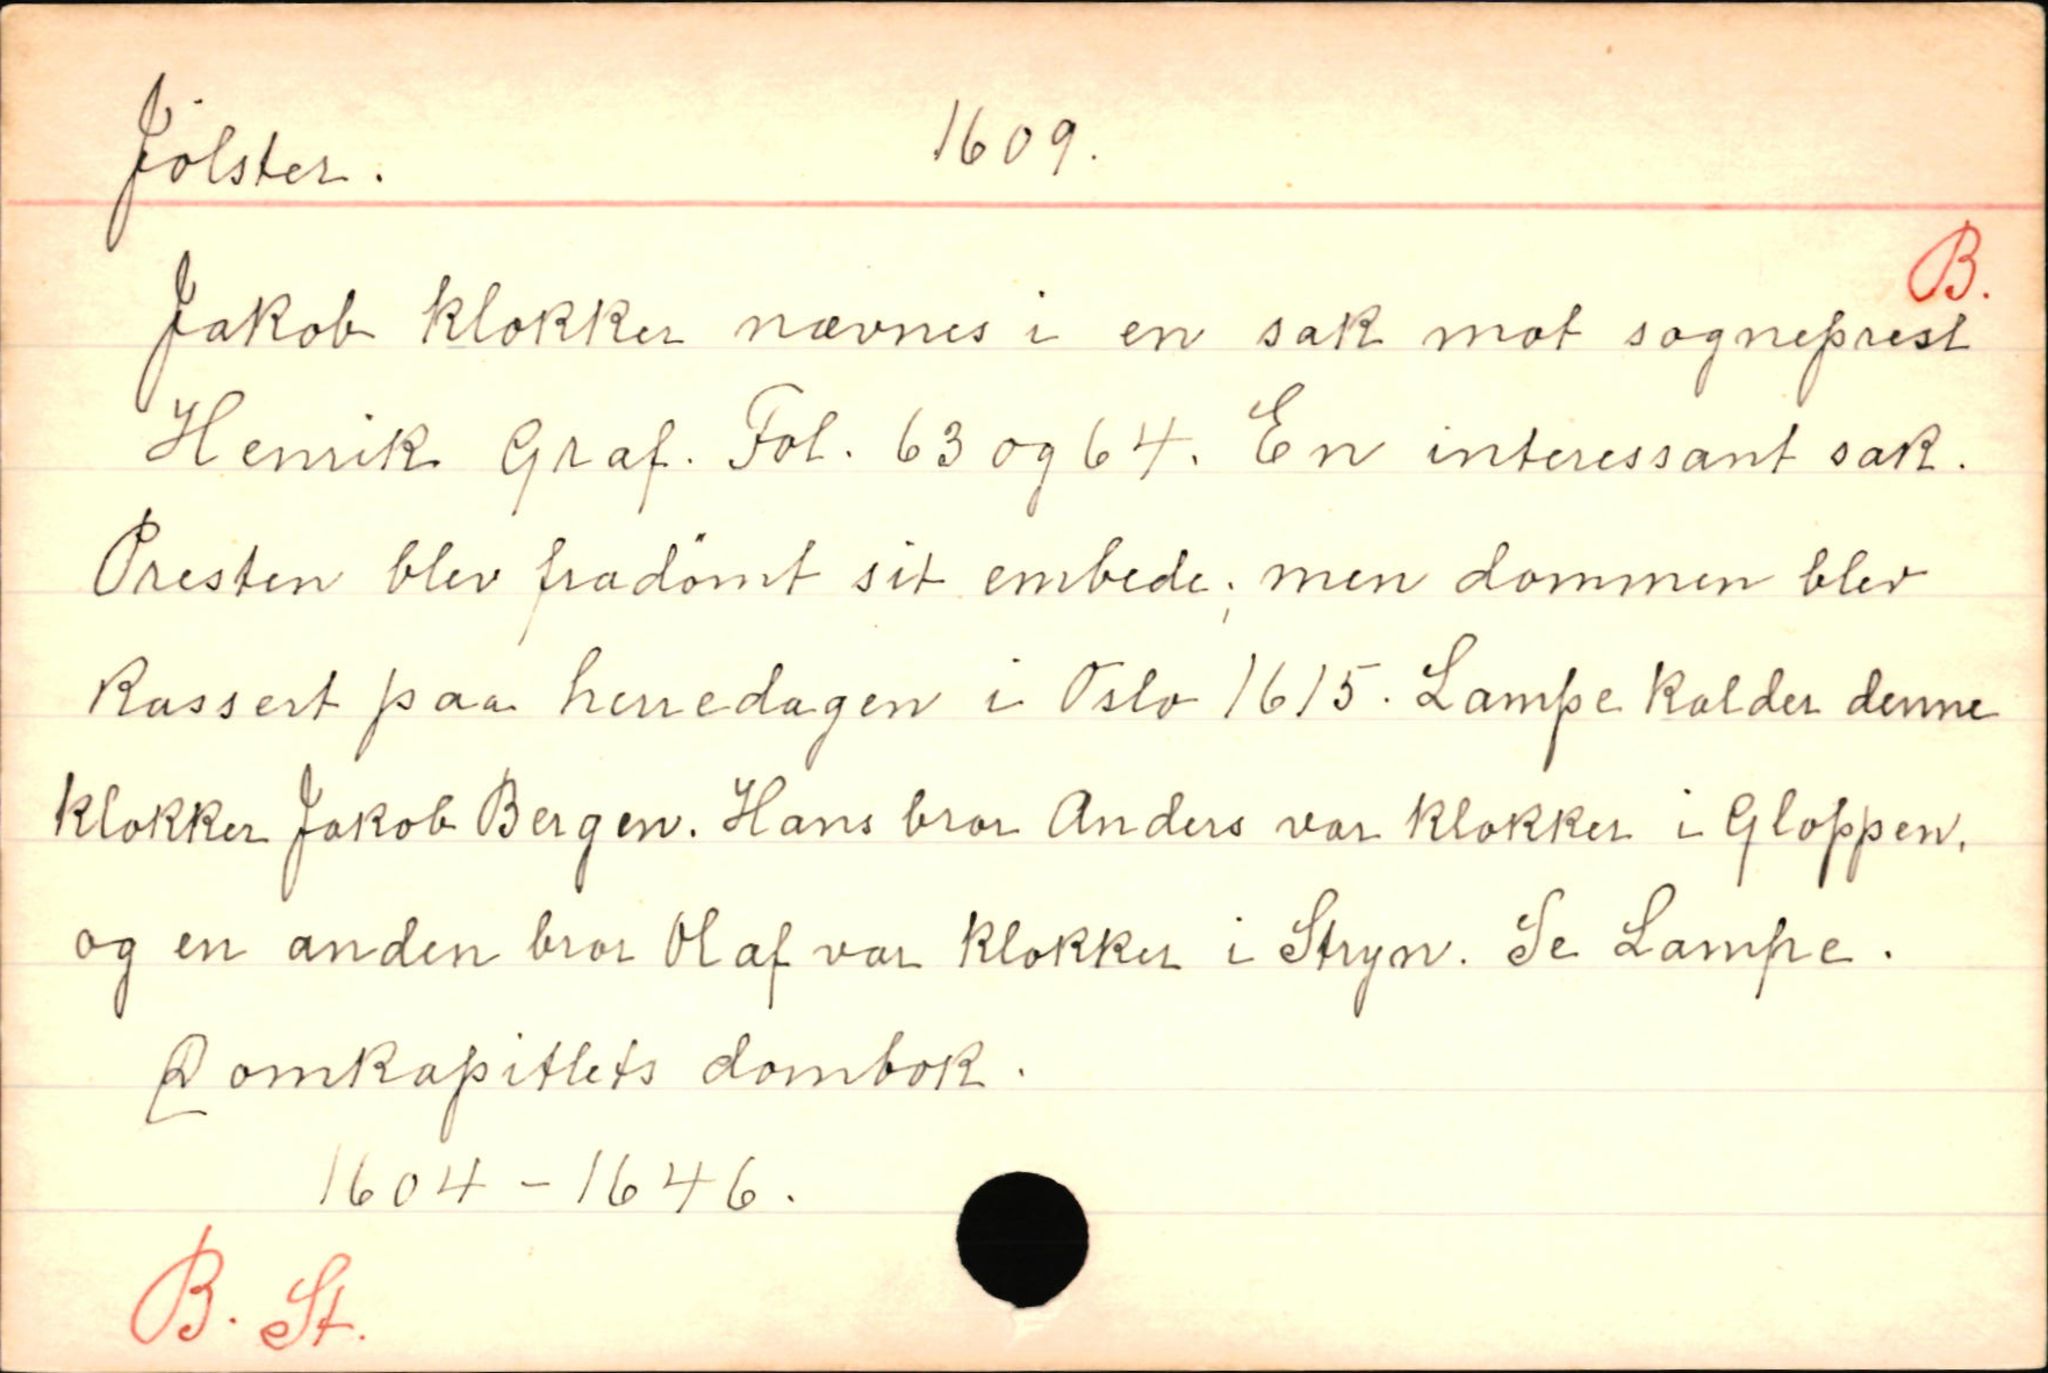 Jölster. 1609.
B.
Jakob klokker nævnes i en sak mot sogneprest
Henrik Graf. Fol. 63 og 64. En interessant sak.
Presten blev fradömt sit embede; men dommen blev
kassert paa herredagen i Oslo 1615. Lampe kalder denne
klokker Jakob Bergen. Hans bror Anders var klokker i Gloppen,
og en anden bror Olaf var klokker i Stryn. Se Lampe.
Domkapitlets dombok.
1604-1646.
B. St.